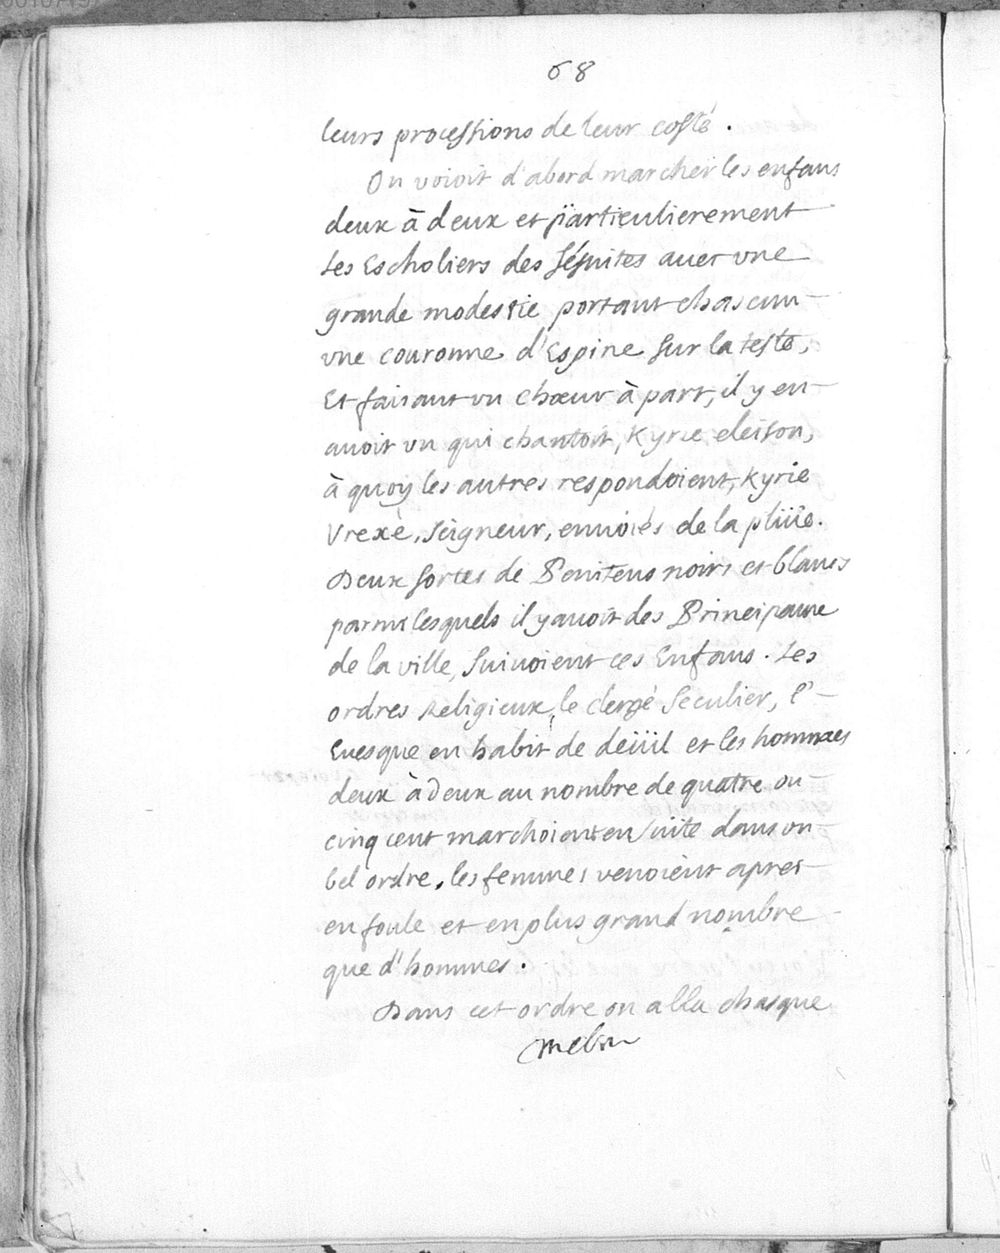 68
leurs processions de leur costé.
On voioit d'abord marcher les enfans
deux à deux et particulierement
les Escholiers des Jésuites auec vne
grande modestie portant chascun
vne couronne d'Espine sur la teste,
Et faisant vn chœur à part, il y en
auoit vn qui chantoit, Kyrie eleison,
à quoÿ les autres respondoient, Kyrie
Vrexè, seigneur, enuoiés de la plüïe.
Deux sortes de Penitens noirs et blancs
parmi lesquels il y auoit des Principaux
de la ville, suiuoient ces Enfans. Les
ordres Religieux, le clergé seculier, l'
Euesque en habit de deüil et les hommes
deux à deux au nombre de quatre ou
cinq cent marchoient en suite dans vn
bel ordre, les femmes venoient apres
en foule et en plus grand nombre
que d'hommes.
Dans cet ordre on alla chasque